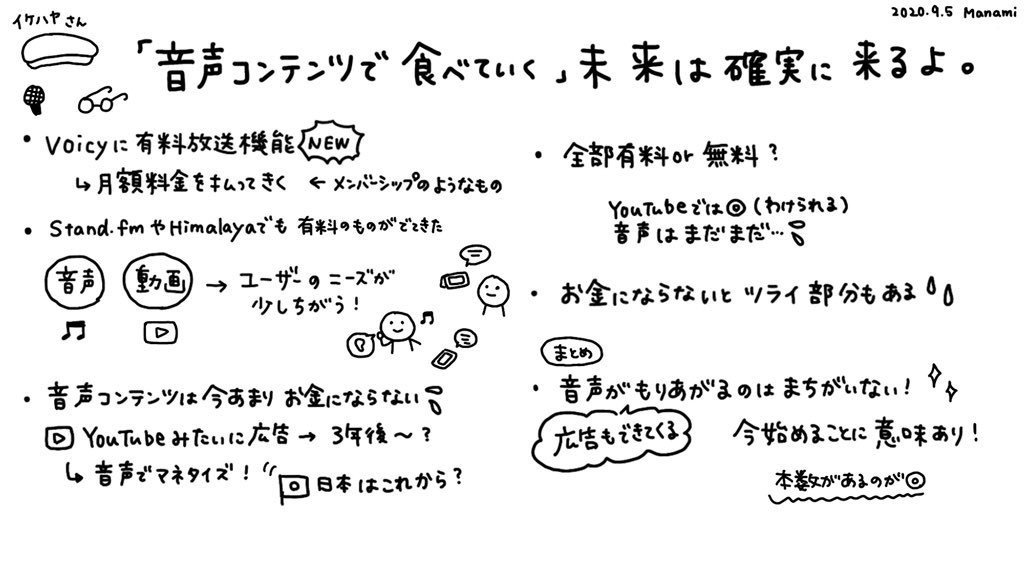 イケハヤさん
2020.9.5 Manami
「音声コンテンツで食べていく」未来は確実に来るよ。
・Voicyに有料放送機能 NEW
↳月額料金を払ってきく ←メンバーシップのようなもの
・Stand.fmやHimalayaでも有料のものがでてきた
音声 動画 → ユーザーのニーズが
少しちがう!
・音声コンテンツは今あまりお金にならない
YouTubeみたいに広告→3年後〜?
↳音声でマネタイズ!
日本はこれから?
・全部有料or無料?
YouTubeでは◎(わけられる)
音声はまだまだ…
・お金にならないとツライ部分もある
まとめ
・音声がもりあがるのはまちがいない!
広告もできてくる
今始めることに意味あり!
本数があるのが◎